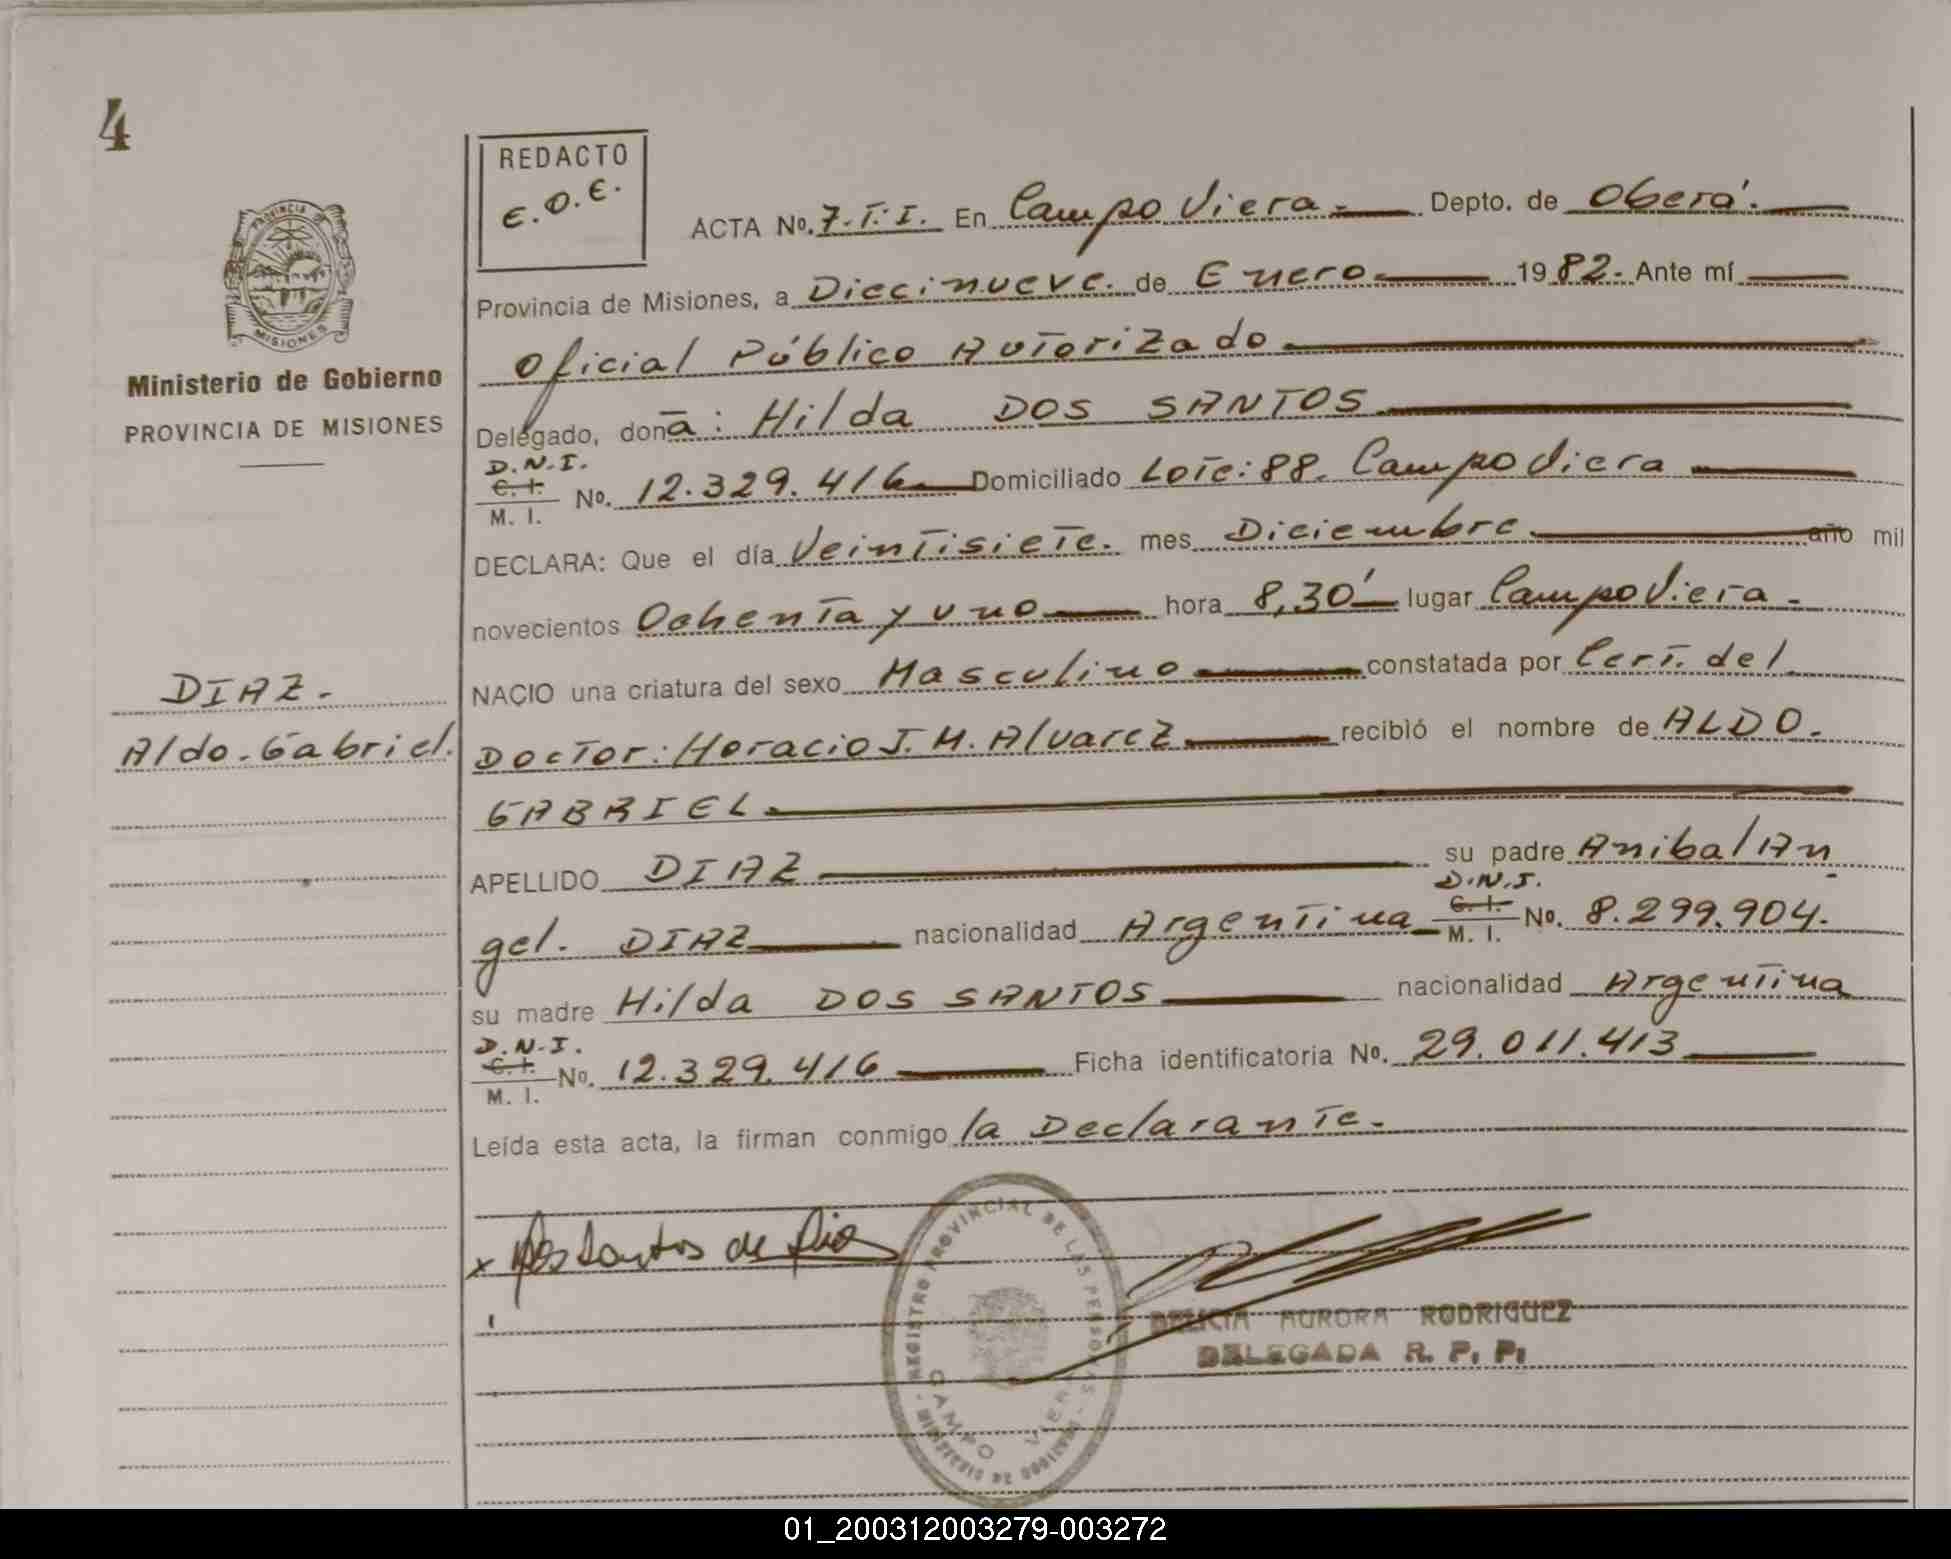 4
REDACTO
E.O.E.
PROVINCIA DE
MISIONES
Ministerio de Gobierno
PROVINCIA DE MISIONES
DIAZ.
Aldo. Gabriel.
ACTA No. 7.T.I. En Campo Viera. Depto. de Oberá.
Provincia de Misiones, a Diecinueve. de Enero 1982. Ante mí
Oficial Público Autorizado
Delegado, doña: Hilda DOS SANTOS
D.N.I.
C. I.
M. I. No. 12.329.416 Domiciliado Lote: 88. Campo Viera
DECLARA: Que el día Veintisiete. mes Diciembre. año mil
novecientos Ochenta y uno hora 8,30' lugar Campo Viera.
NACIO una criatura del sexo Masculino constatada por Cert. del
Doctor: Horacio J. M. Alvarez recibió el nombre de ALDO.
GABRIEL
APELLIDO DIAZ su padre Anibal An
gel. DIAZ nacionalidad Argentina D.N.I. C. I. M. I. No. 8.299.904.
su madre Hilda DOS SANTOS nacionalidad Argentina
D.N.I.
C. I.
M. I. No. 12.329.416 Ficha identificatoria No. 29.011.413
Leída esta acta, la firman conmigo la Declarante.
x Dos Santos de Diaz
REGISTRO PROVINCIAL DE LAS PERSONAS
CAMPO VIERA
DELICIA AURORA RODRIGUEZ
DELEGADA R. P. P.
01_200312003279-003272